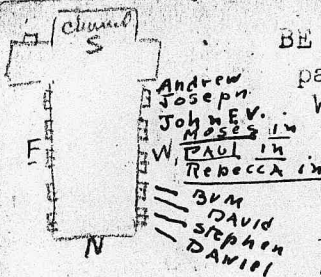 chancel
S
BE
pa
W
Andrew
Joseph
John E.V.
Moses in
E
W,
PAUL in
Rebecca in
BVM
DAVID
Stephen
DANIEL
N